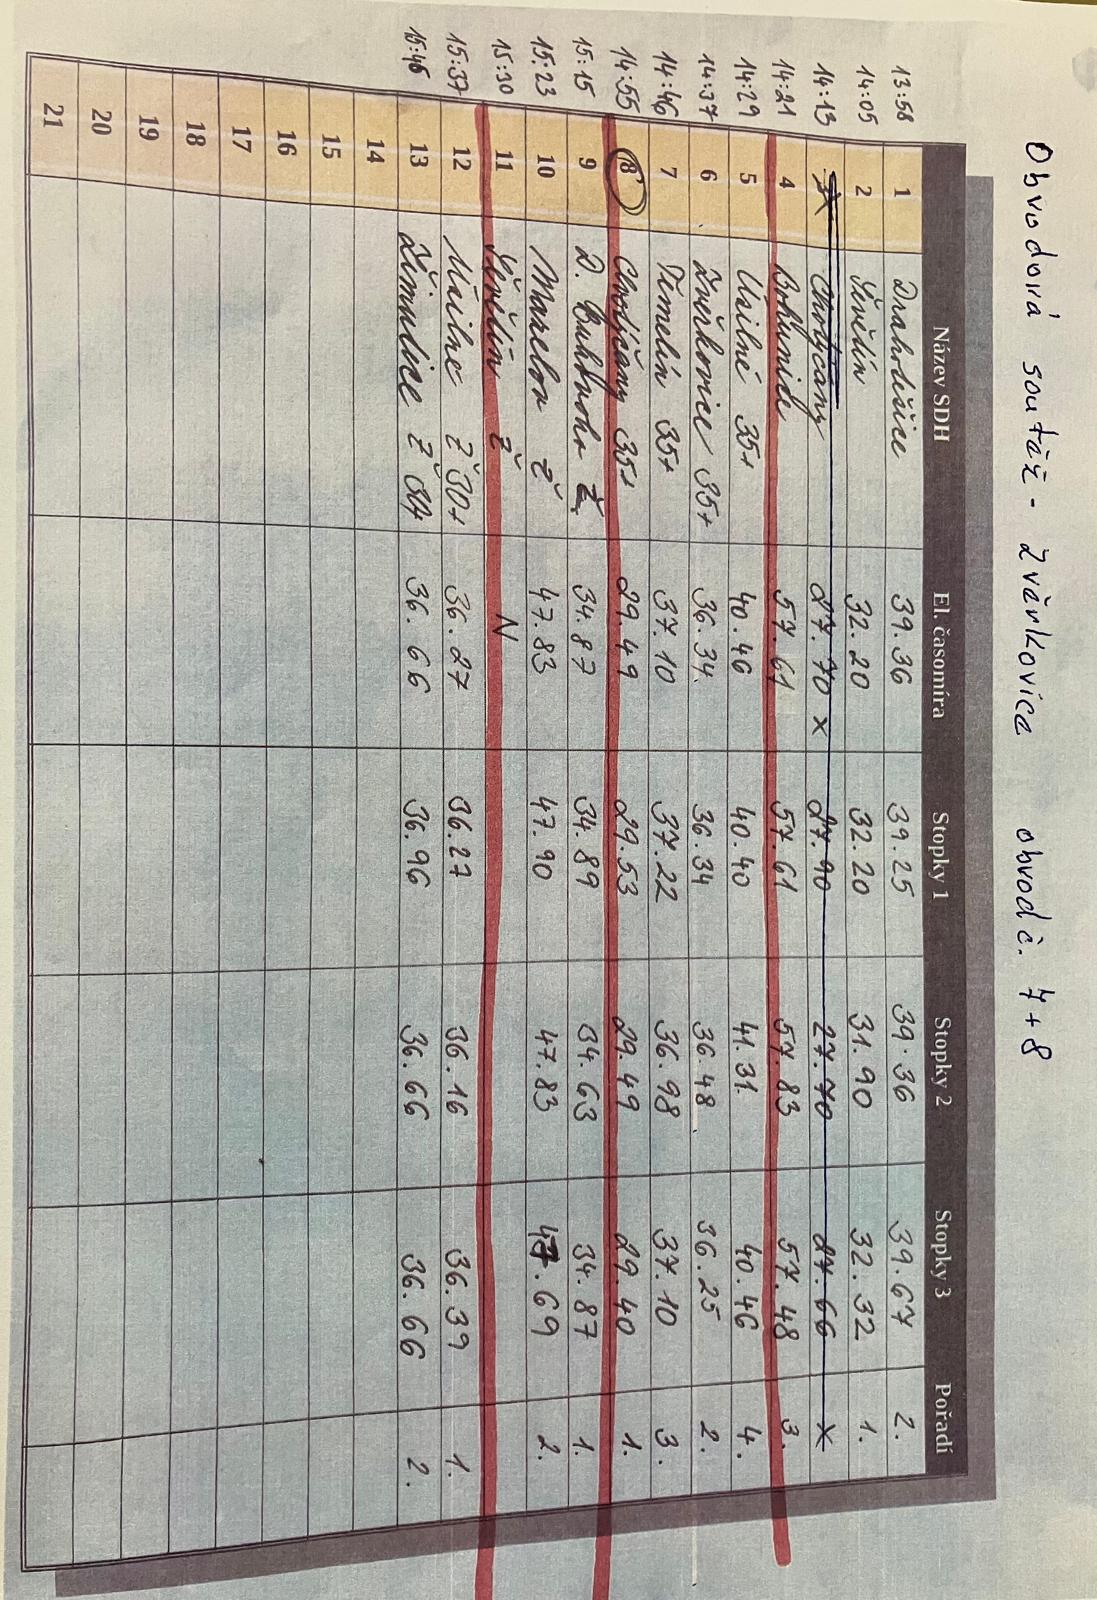 Obvodová soutěž - Zvěrkovice obvod č. 7+8
Název SDH El. časomíra Stopky 1 Stopky 2 Stopky 3 Pořadí
13:58 1 Drahotěšice 39.36 39.25 39.36 39.67 2.
14:05 2 Ševětín 32.20 32.20 31.90 32.32 1.
14:13 3 Chrášťany 27.70 x 27.90 27.70 27.66 x
14:21 4 Bohunice 57.61 57.61 57.83 57.48 3.
14:29 5 Všilné 35+ 40.46 40.40 41.31 40.46 4.
14:37 6 Zvěrkovice 35+ 36.34 36.34 36.48 36.25 2.
14:46 7 Temelín 35+ 37.10 37.22 36.98 37.10 3.
14:55 8 35+ 29.49 29.53 29.49 29.40 1.
15:15 9 D. Ž 34.87 34.89 34.63 34.87 1.
15:23 10 Ž 47.83 47.90 47.83 47.69 2.
15:30 11 Ševětín Ž N
15:37 12 Všilné Ž 30+ 36.27 36.27 36.16 36.39 1.
15:46 13 Žimutice Ž 30+ 36.66 36.96 36.66 36.66 2.
14
15
16
17
18
19
20
21